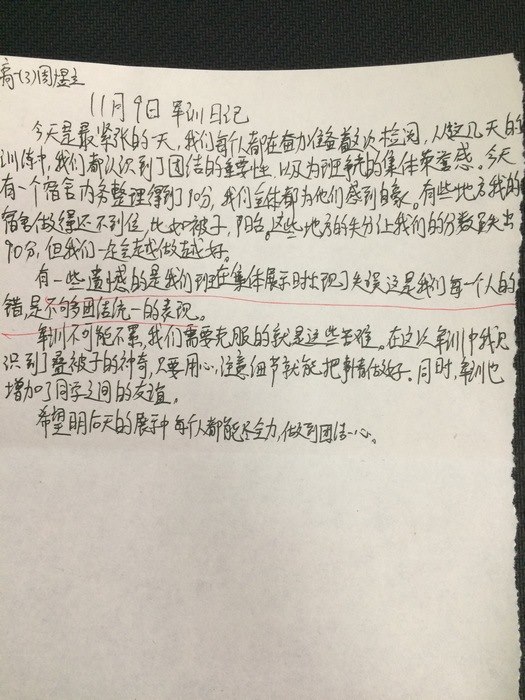 高一(3)周煜立
11月9日 军训日记
今天是最紧张的一天,我们每个人都在奋力准备首次检阅,从这几天的
训练中,我们都认识到了团结的重要性,以及为班争光的集体荣誉感。今天
有一个宿舍内务整理得到了10分,我们全体都为他们感到自豪。有些地方我的
宿舍做得还不到位,比如被子,阳台。这些地方的失分让我们的分数
90分,但我们一定会越做越好。
有一些遗憾的是我们班在集体展示时出现了失误这是我们每一个人的
错,是不够多团结统一的表现。
军训不可能不累,我们需要克服的就是这些苦难。在这次军训中我见
识到了叠被子的神奇,只要用心,注意细节就能把事情做好。同时,军训也
增加了同学之间的友谊。
希望明后天的展示中每个人都能尽全力,做到团结一心。